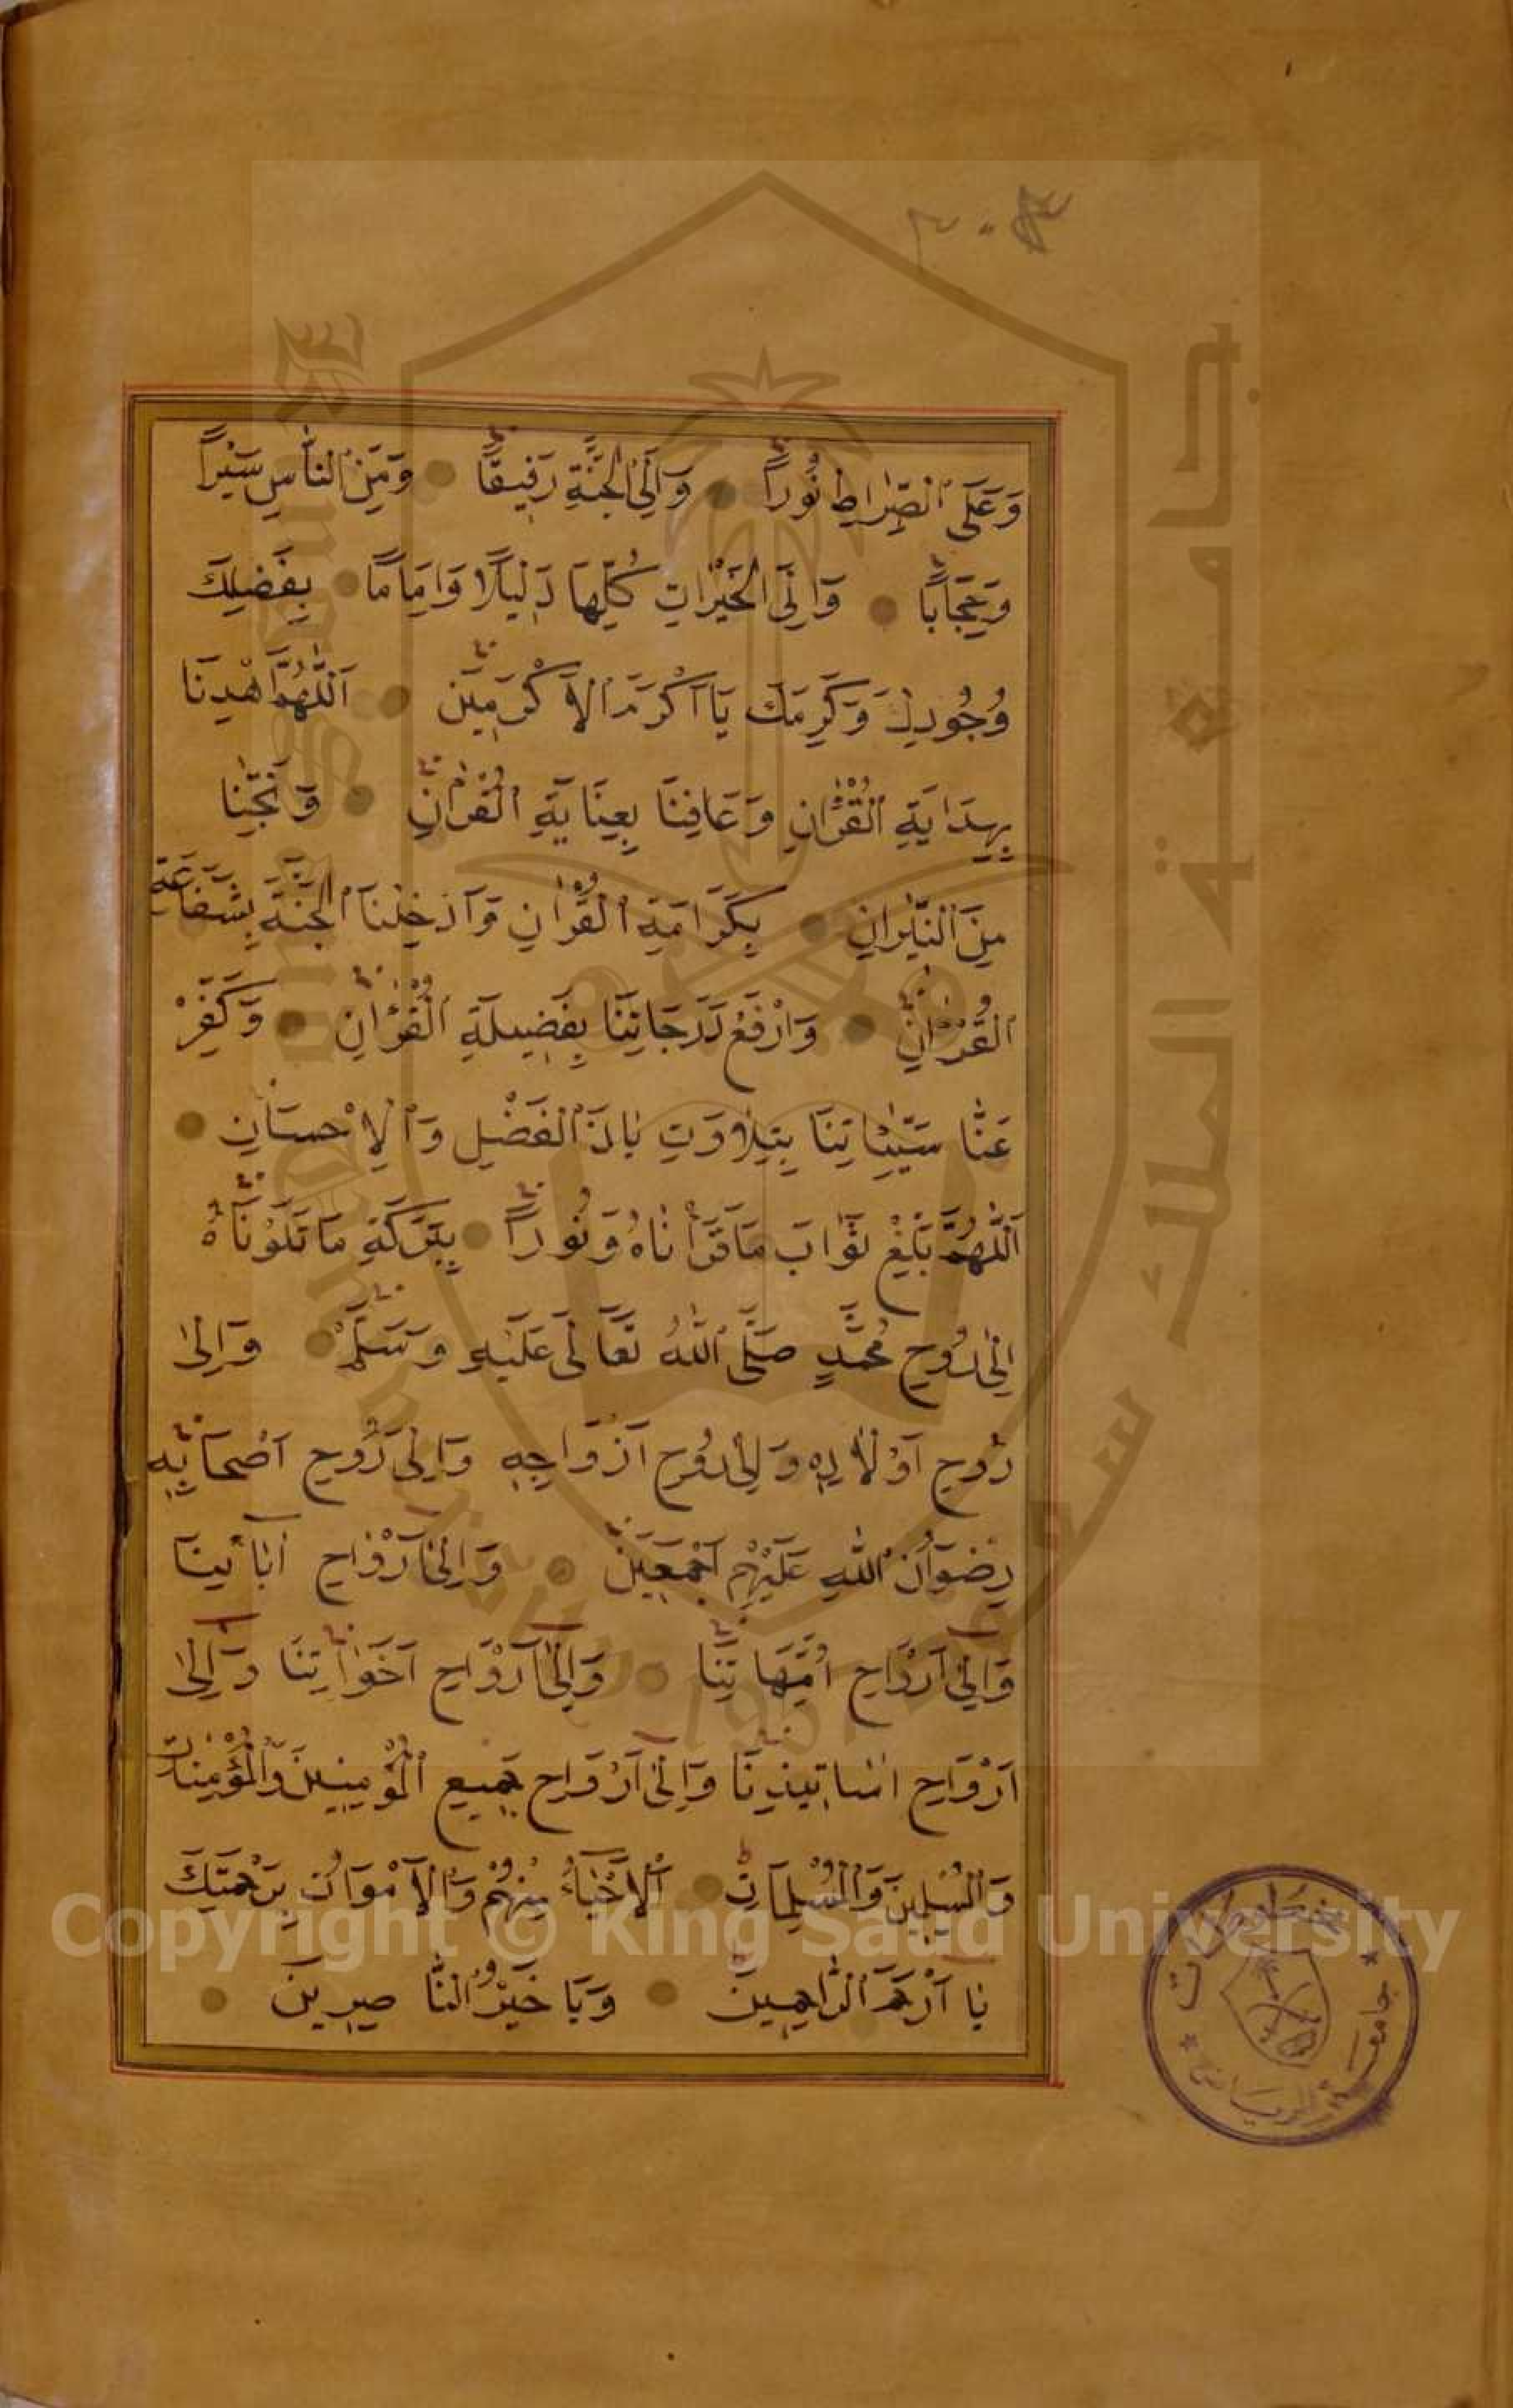 ٣٠٤
وَعَلَى الصِّرَاطِ نُورًا وَاِلَى الْجَنَّةِ رَفِيقًا وَمِنَ النَّاسِ سَيْرًا
وَحِجَابًا وَاِلَى الْخَيْرَاتِ كُلِّهَا دَلِيلًا وَاِمَامًا بِفَضْلِكَ
وُجُودِكَ وَكَرَمِكَ يَا اَكْرَمَ الْاَكْرَمِينَ اَللّٰهُمَّ اهْدِنَا
بِهِدَايَةِ الْقُرْاٰنِ وَعَافِنَا بِعِنَايَةِ الْقُرْاٰنِ وَنَجِّنَا
مِنَ النِّيرَانِ بِكَرَامَةِ الْقُرْاٰنِ وَاَدْخِلْنَا الْجَنَّةَ بِشَفَاعَةِ
الْقُرْاٰنِ وَارْفَعْ دَرَجَاتِنَا بِفَضِيلَةِ الْقُرْاٰنِ وَكَفِّرْ
عَنَّا سَيِّئَاتِنَا بِتِلَاوَتِ يَا ذَا الْفَضْلِ وَالْاِحْسَانِ
اَللّٰهُمَّ بَلِّغْ ثَوَابَ مَا قَرَأْنَاهُ وَنُورًا بِبَرَكَةِ مَا تَلَوْنَاهُ
اِلٰى رُوحِ مُحَمَّدٍ صَلَّى اللّٰهُ تَعَالٰى عَلَيْهِ وَسَلَّمَ وَاِلٰى
رُوحِ اَوْلَادِهِ وَاِلٰى رُوحِ اَزْوَاجِهِ وَاِلٰى رُوحِ اَصْحَابِهِ
رِضْوَانُ اللّٰهِ عَلَيْهِمْ اَجْمَعِينَ وَاِلٰى اَرْوَاحِ اٰبَائِنَا
وَاِلٰى اَرْوَاحِ اُمَّهَاتِنَا وَاِلٰى اَرْوَاحِ اَخَوَاتِنَا وَاِلٰى
اَرْوَاحِ اسَاتِيذِنَا وَاِلٰى اَرْوَاحِ جَمِيعِ الْمُؤْمِنِينَ وَالْمُؤْمِنَاتِ
وَالْمُسْلِمِينَ وَالْمُسْلِمَاتِ اَلْاَحْيَاءُ مِنْهُمْ وَالْاَمْوَاتِ بِرَحْمَتِكَ
يَا اَرْحَمَ الرَّاحِمِينَ وَيَا خَيْرَ النَّاصِرِينَ
جامعة الملك سعود
King Saud University
1957
Copyright © King Saud University
مخطوطات
جامعة الرياض